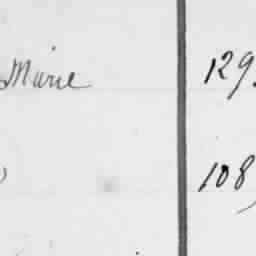 Marie 129
108